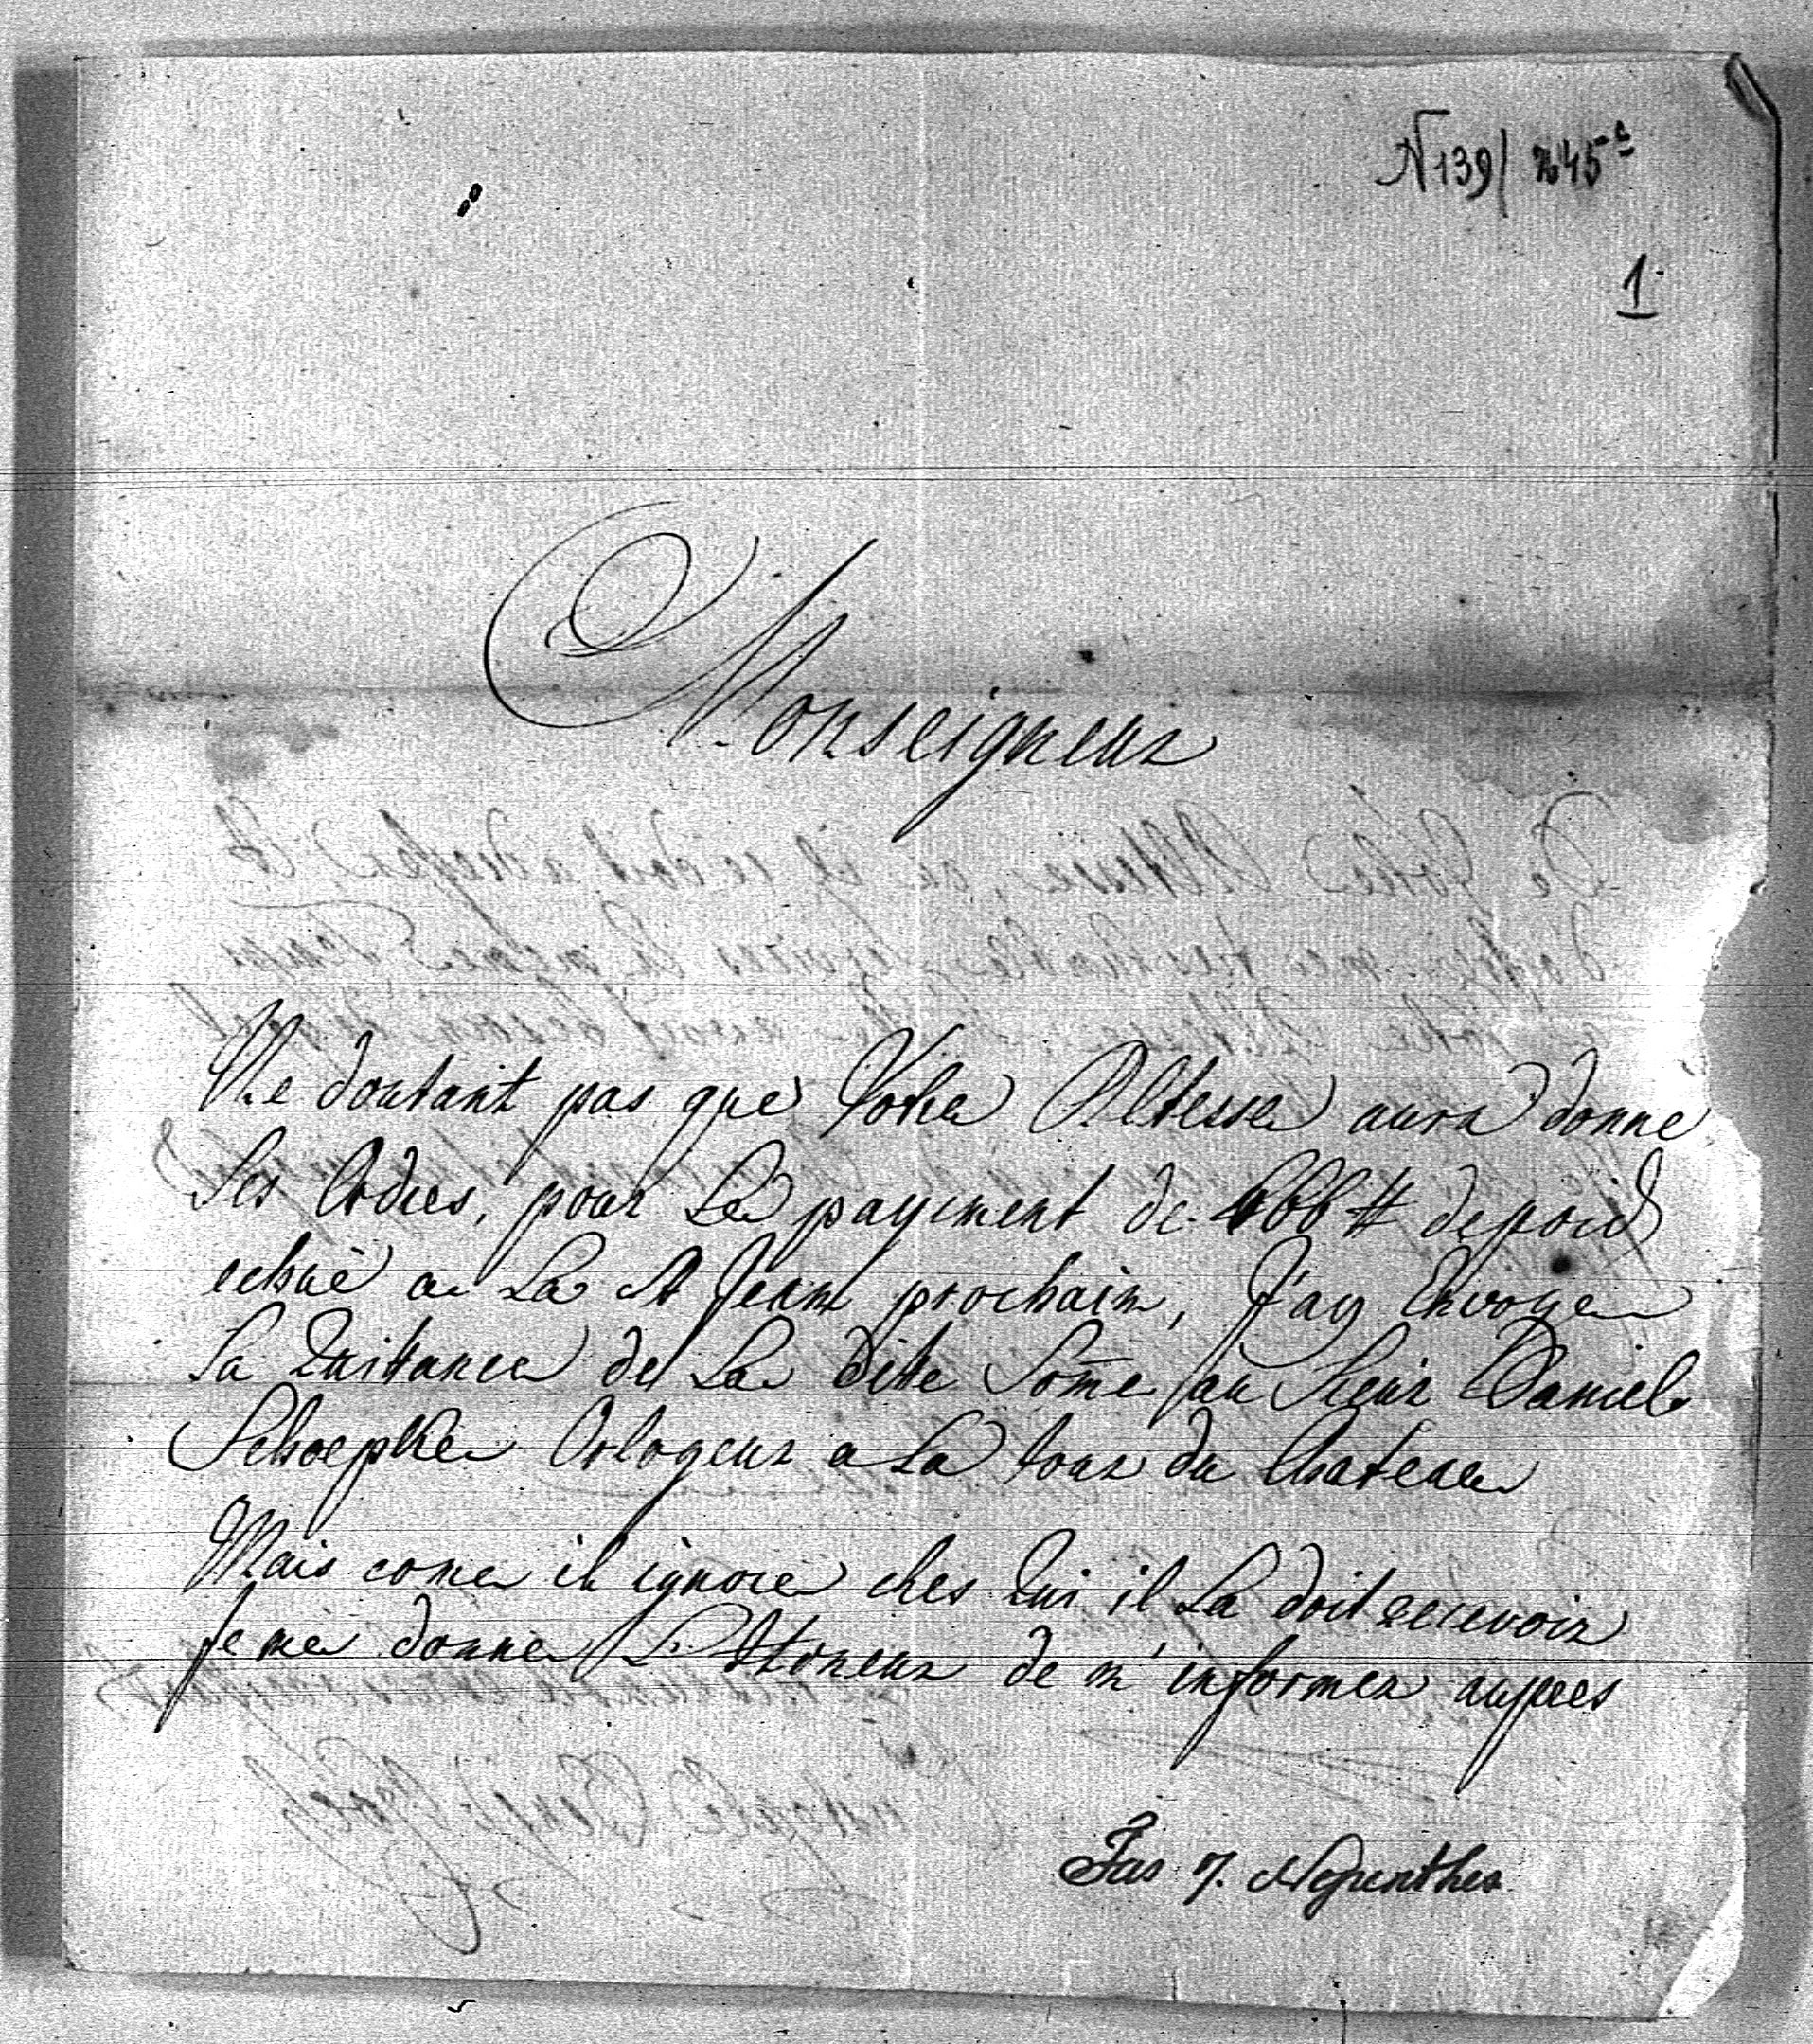 N 139/ 245
1
Monseigneur
Ne doutant pas que Votre Altesse aura donné
Ses Ordres, pour Le payement de 666 # de poid
echuë a La St Jean prochain, J'ay Envoye
La Quittance de La dite Som̄e au Sieur Daniel
Schoepke Orlogeur a La tour du Chateau
Mais come il ignore ches Qui il La doit recevoir
Je me donne L'Honeur de m'informer aupres
Fas 7.